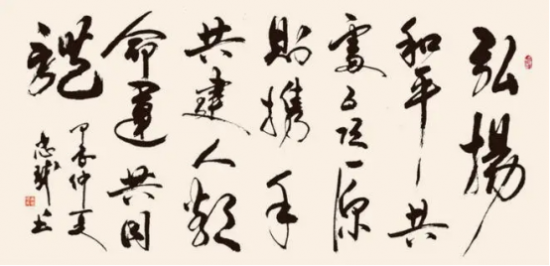 弘揚
和平共
處五項原
則携手
共建人類
命運共同
體
甲辰仲夏